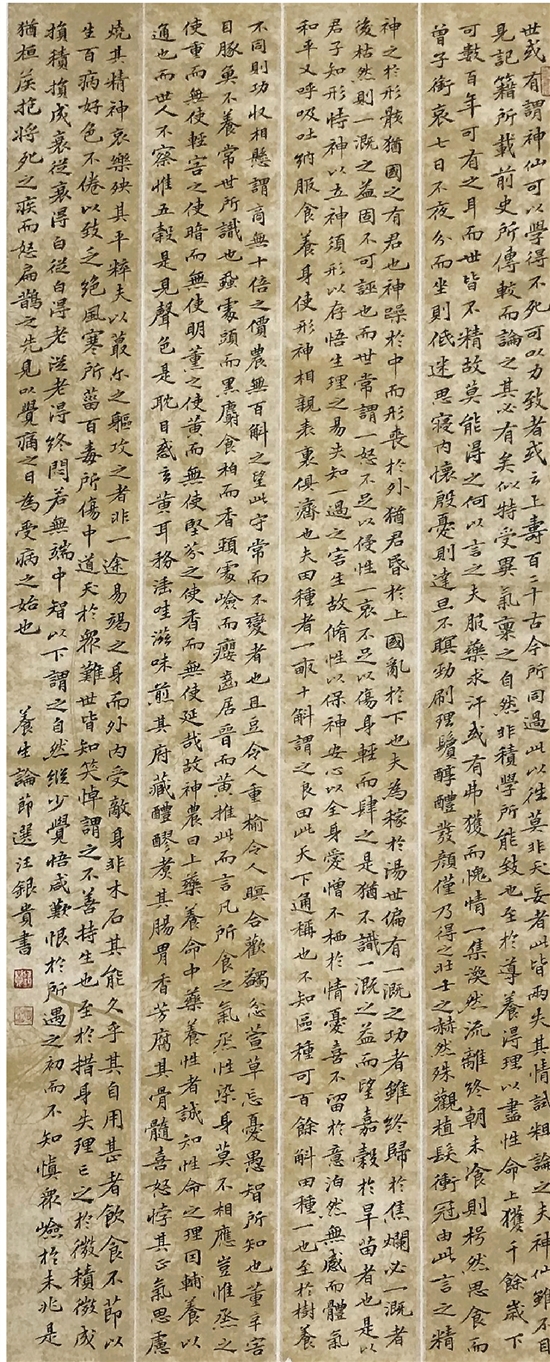 世或有謂神仙可以學得不死可以力致者或云上壽百二十古今所同過此以往莫非夭妄者此皆兩失其情試粗論之夫神仙雖不目
見記籍所載前史所傳較而論之其必有矣似特受異氣稟之自然非積學所能致也至於導養得理以盡性命上獲千餘歲下
可數百年可有之耳而世皆不精故莫能得之何以言之夫服藥求汗或有弗獲而愧情一集渙然流離終朝未飡則枵然思食而
曾子銜哀七日不夜分而坐則低迷思寢內懷殷憂則達旦不瞑勁刷理鬢醇醴發顏僅乃得之壯士之赫然殊觀植髮衝冠由此言之精
神之於形骸猶國之有君也神躁於中而形喪於外猶君昏於上國亂於下也夫為稼於湯世偏有一溉之功者雖終歸於焦爛必一溉者
後枯然則一溉之益固不可誣也而世常謂一怒不足以侵性一哀不足以傷身輕而肆之是猶不識一溉之益而望嘉穀於旱苗者也是以
君子知形恃神以立神須形以存悟生理之易失知一過之害生故脩性以保神安心以全身愛憎不栖於情憂喜不留於意泊然無感而體氣
和平又呼吸吐納服食養身使形神相親表裏俱濟也夫田種者一畝十斛謂之良田此天下通稱也不知區種可百餘斛田種一也至於樹養
不同則功收相懸謂商無十倍之價農無百斛之望此守常而不變者也且豆令人重榆令人瞑合歡蠲忿萱草忘憂愚智所知也薰辛害
目豚魚不養常世所識也蝨處頭而黑麝食柏而香頸處險而癭齒居晉而黃推此而言凡所食之氣蒸性染身莫不相應豈惟蒸之
使重而無使輕害之使暗而無使明薰之使黃而無使堅芬之使香而無使延哉故神農曰上藥養命中藥養性者誠知性命之理因輔養以
通也而世人不察惟五穀是見聲色是耽目惑玄黃耳務淫哇滋味煎其府藏醴醪煮其腸胃香芳腐其骨髓喜怒悖其正氣思慮
燒其精神哀樂殃其平粹夫以蕞尔之軀攻之者非一途易竭之身而外內受敵身非木石其能久乎其自用甚者飲食不節以
生百病好色不倦以致乏絕風寒所菑百毒所傷中道夭於眾難世皆知笑悼謂之不善持生也至於措身失理亡之於微積微成
損積損成衰從衰得白從白得老從老得終悶若無端中智以下謂之自然縱少覺悟咸歎恨於所遇之初而不知慎眾險於未兆是
猶桓侯抱將死之疾而怒扁鵲之先見以覺痛之日為受病之始也
養生論節選汪銀貴書